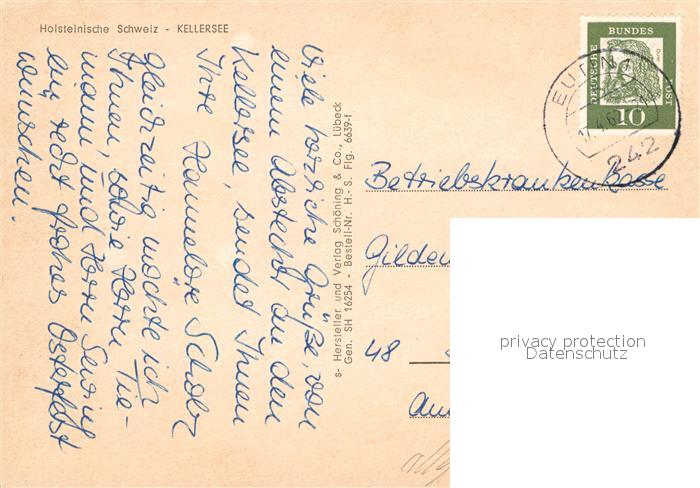 Holsteinische Schweiz - KELLERSEE
Viele herzliche Grüße, von
einem Abstecher an den
Kellersee, sendet Ihnen
Ihre Hannelore Scholz
Gleichzeitig möchte ich
Ihnen, sowie Herrn Tie-
mann, und Herrn
ein recht frohes Osterfest
wünschen.
s- Hersteller und Verlag Schöning & Co., Lübeck
Gen. SH 16254 - Bestell-Nr. H.- S. Flg. 6639-f
DEUTSCHE BUNDES POST
10
EUTIN
242
Betriebskrankenkasse
Gilden
48
privacy protection
Datenschutz